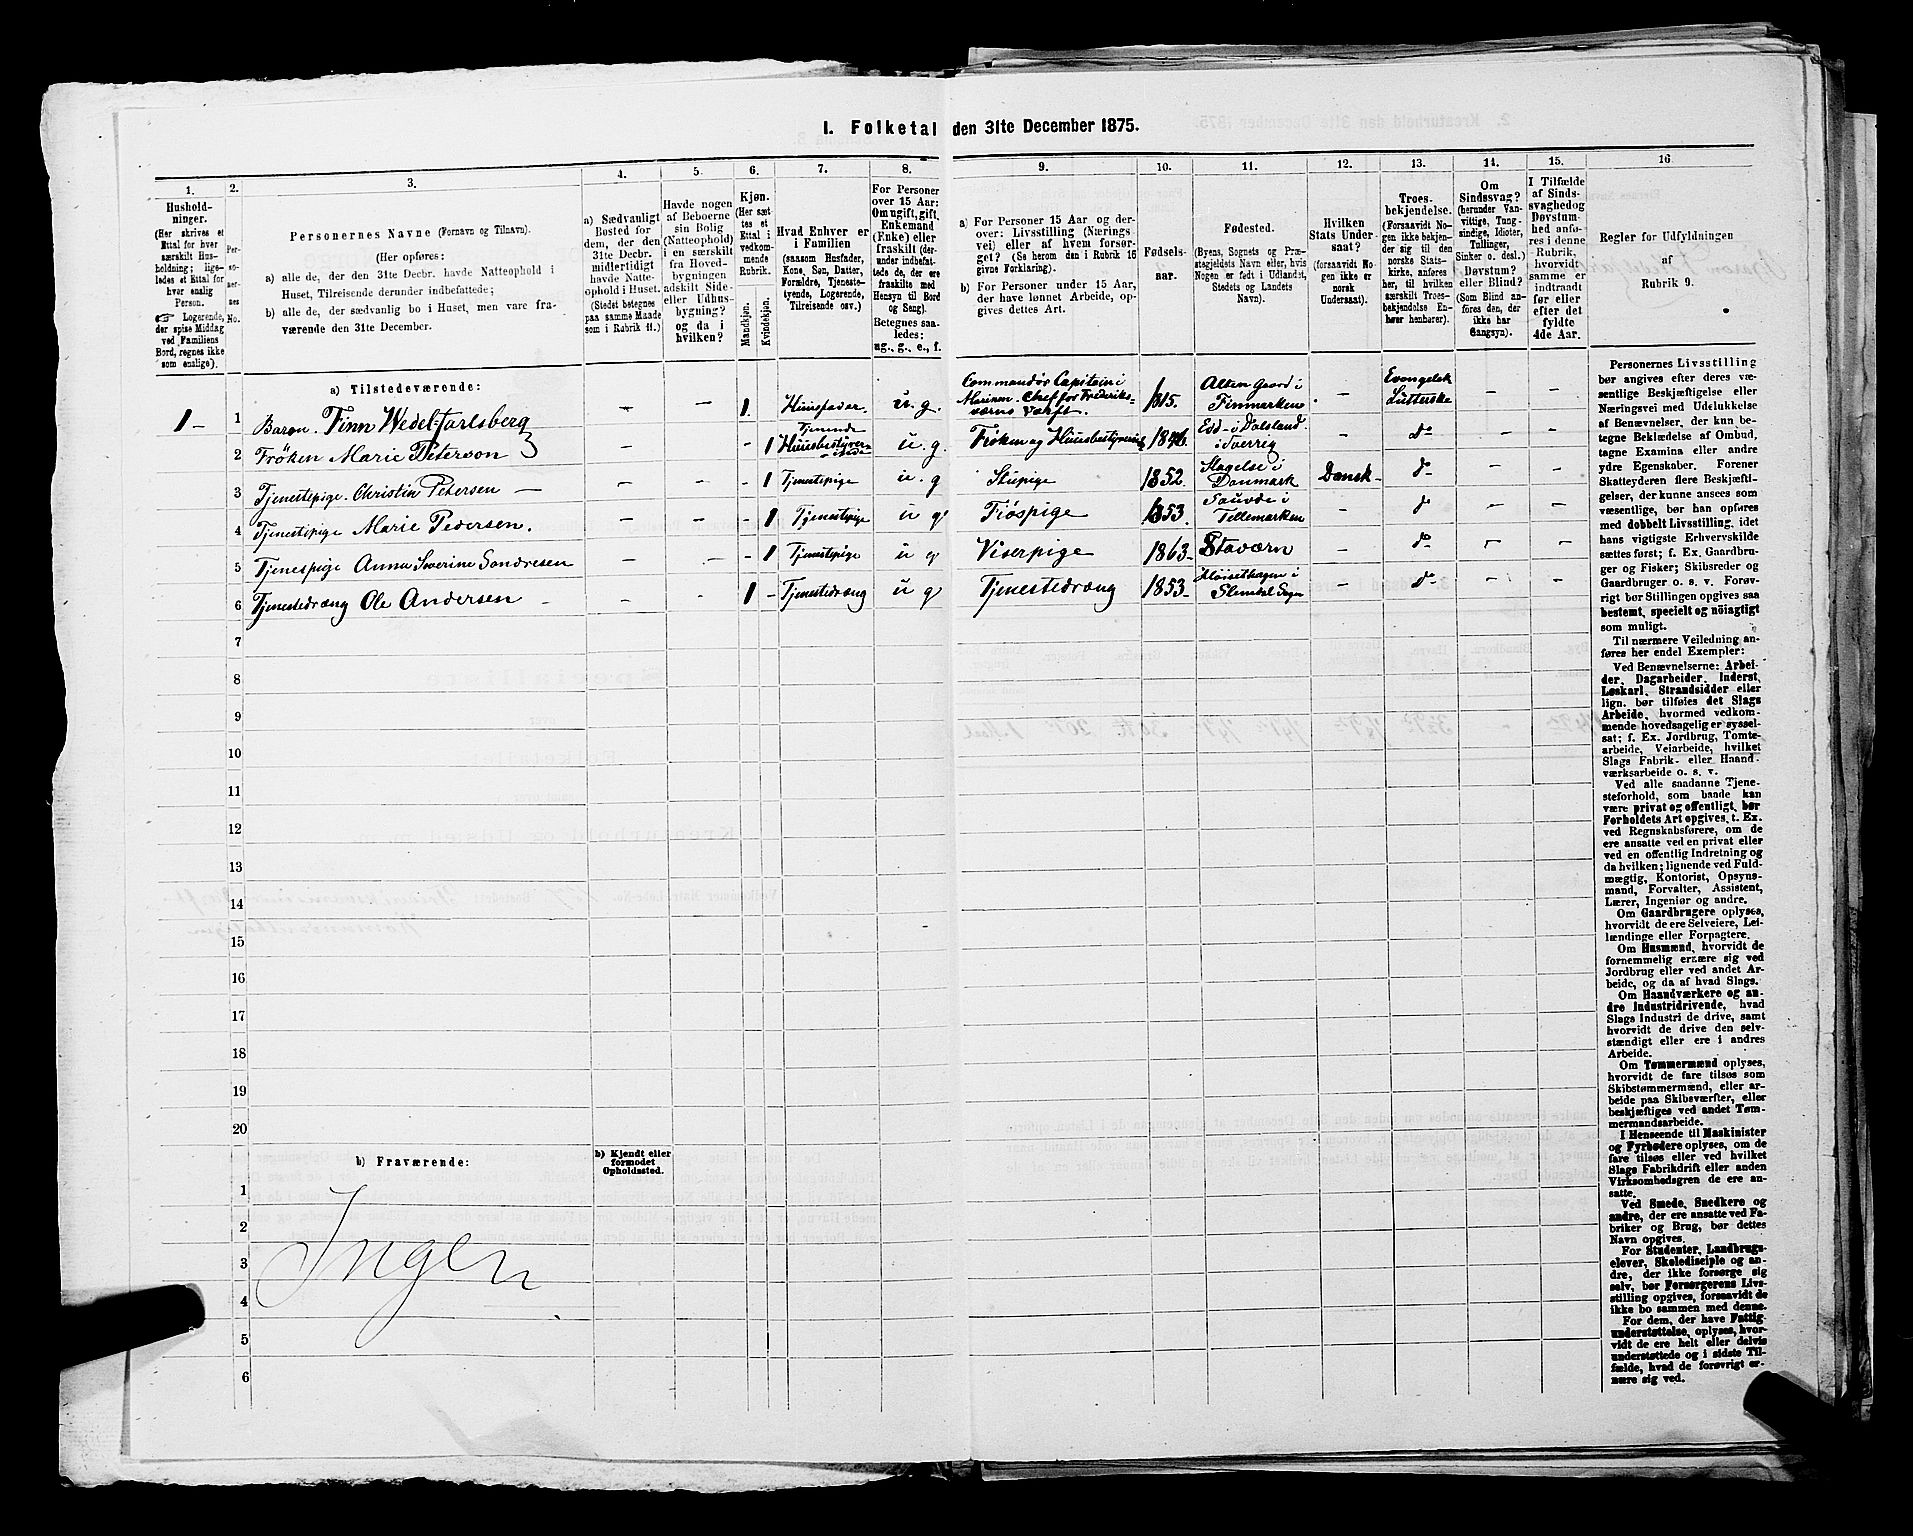 I. Folketal den 31te December 1875.
1. 2. 3. 4. 5. 6. 7. 8. 9. 10. 11. 12. 13. 14. 15. 16
Husholdninger.
(Her skrives et
Ettal for hver
særskilt Husholdning;
ligeledes et Ettal for
hver enslig
Person.
☞ Logerende,
der spise Middag
ved Familiens
Bord, regnes ikke
som enslige).
Personernes No.
Personernes Navne (Fornavn og Tilnavn).
(Her opføres:
a) alle de, der den 31te Decbr. havde Natteophold i
Huset, Tilreisende derunder indbefattede;
b) alle de, der sædvanlig bo i Huset, men vare fraværende
den 31te December.
a) Sædvanligt
Bosted for
dem, der den
31te Decbr.
midlertidigt
havde Natteophold
i Huset.
(Stedet betegnes
paa samme Maade
som i Rubrik 11.)
Havde nogen
af Beboerne
sin Bolig
(Natteophold)
i en særskilt
fra Hovedbygningen
adskilt Side-
eller Udhusbygning?
og da i
hvilken?
Kjøn.
(Her sættes
et
Ettal i
vedkommende
Rubrik.
Mandkjøn.
Kvindekjøn.
Hvad Enhver er
i Familien
(saasom Husfader,
Kone, Søn, Datter,
Forældre, Tjenestetyende,
Logerende,
Tilreisende osv.)
For Personer
over 15 Aar:
Om ugift, gift,
Enkemand
(Enke) eller
fraskilt (derunder
indbefattede
de, der ere
fraskilte med
Hensyn til Bord
og Seng).
Betegnes saaledes:
ug., g., e., f.
a) For Personer 15 Aar og derover:
Livsstilling (Næringsvei)
eller af hvem forsørget?
(Se herom den i Rubrik 16
givne Forklaring).
b) For Personer under 15 Aar,
der have lønnet Arbeide, opgives
dettes Art.
Fødselsaar.
Fødested.
(Byens, Sognets og Præstegjeldets
Navn eller, hvis
Nogen er født i Udlandet,
Stedets og Landets
Navn).
Hvilken
Stats Undersaat?
(forsaavidt Nogen
ikke er
norsk
Undersaat).
Troesbekjendelse.
(Forsaavidt Nogen
ikke bekjender
sig til den
norske Statskirke,
anføres
her, til hvilken
særskilt Troesbekjendelse
Enhver
henhører).
Om
Sindssvag?
(herunder Vanvittige,
Tungsindige,
Idioter,
Tullinger,
Sinker o. desl.)
Døvstum?
eller Blind?
(Som Blind anføres
den, der
ikke har
Gangsyn).
I Tilfælde
af Sindssvaghed
og
Døvstumhed
anføres
i denne
Rubrik,
hvorvidt
samme er
indtraadt
før eller
efter det
fyldte
4de Aar.
Regler for Udfyldningen
af
Rubrik 9.
a) Tilstedeværende:
1 – 1 Baron. Finn Wedel-Jarlsberg – – 1 Huusfader. u. g. Commandør Capitein i Marinen. Chef for Frederiksværns Værft. 1815. Alten Gaard i Finmarken. – Evangelsk Lutterske – –
2 Frøken Marie Peterson – – – 1 u. g. Frøken og Huusbestyrerinde Edd i Dalsland i Sverrig – do – –
3 Tjenestepige. Christin Petersen – – – – 1 Tjenestepige u. g Stupige 1852. Slagelse i Danmark Dansk – do – –
4 Tjenestepige Marie Pedersen. – – – 1 Tjenestepige u g Fjøspige 1853. Sauvde i Tellemarken – do – –
5 Tjenespige Anna Severine Sondresen – – – 1 Tjenestepige u g Viserpige 1863 – Staværn – do – –
6 Tjenestedræng Ole Andersen – – – 1 – Tjenestedræng u g Tjenestedræng 1853 – – do – –
7
8
9
10
11
12
13
14
15
16
17
18
19
20
b) Fraværende:
b) Kjendt eller
formodet
Opholdssted.
1
2
3
4
5
6
Ingen
Personernes Livsstilling
bør angives efter deres væsentlige
Beskjæftigelse eller
Næringsvei med Udelukkelse
af Benævnelser, der kun betegne
Beklædelse af Ombud,
tagne Examina eller andre
ydre Egenskaber. Forener
Skatteyderen flere Beskjæftigelser,
der kunne ansees som
væsentlige, bør han opføres
med dobbelt Livsstilling, idet
hans vigtigste Erhvervskilde
sættes først; f. Ex. Gaardbruger
og Fisker; Skibsreder og
Gaardbruger o. s. v. Forøvrigt
bør Stillingen opgives saa
bestemt, specielt og nöiagtigt
som muligt.
Til nærmere Veiledning anføres
her endel Exempler:
Ved Benævnelserne: Arbeider,
Dagarbeider, Inderst,
Løskarl, Strandsidder eller
lign. bør tilføies det Slags
Arbeide, hvormed vedkommende
hovedsagelig er sysselsat;
f. Ex. Jordbrug, Tomtearbeide,
Veiarbeide, hvilket
Slags Fabrik- eller Haandværksarbeide
o. s. v.
Ved alle saadanne Tjenesteforhold,
som baade kan
være privat og offentligt, bør
Forholdets Art opgives, t. Ex.
ved Regnskabsførere, om de
ere ansatte ved en privat eller
ved en offentlig Indretning og
da hvilken; lignende ved Fuldmægtig,
Kontorist, Opsynsmand,
Forvalter, Assistent,
Lærer, Ingeniør og andre.
Om Gaardbrugere oplyses,
hvorvidt de ere Selveiere, Leilændinge
eller Forpagtere.
Om Husmænd, hvorvidt de
fornemmelig ernære sig ved
Jordbrug eller ved andet Arbeide,
og da af hvad Slags.
Om Haandværkere og andre
Industridrivende, hvad
Slags Industri de drive, samt
hvorvidt de drive den selvstændigt
eller ere i andres
Arbeide.
Om Tømmermænd oplyses,
hvorvidt de fare tilsøs som
Skibstømmermænd, eller arbeide
paa Skibsværfter, eller
beskjæftiges ved andet Tømmermandsarbeide.
I Henseende til Maskinister
og Fyrbødere oplyses, om de
fare tilsøs eller ved hvilket
Slags Fabrikdrift eller anden
Virksomhedsgren de ere ansatte.
Ved Smede, Snedkere og
andre, der ere ansatte ved Fabriker
og Brug, bør dettes
Navn opgives.
For Studenter, Landbrugselever,
Skoledisciple og andre,
der ikke forsørge sig
selv, bør Forsørgerens Livsstilling
opgives, forsaavidt de
ikke bo sammen med denne.
For dem, der have Fattigunderstøttelse,
oplyses, hvorvidt
de ere helt eller delvis
understøttede og i sidste Tilfælde,
hvad de forøvrigt ernære
sig ved.